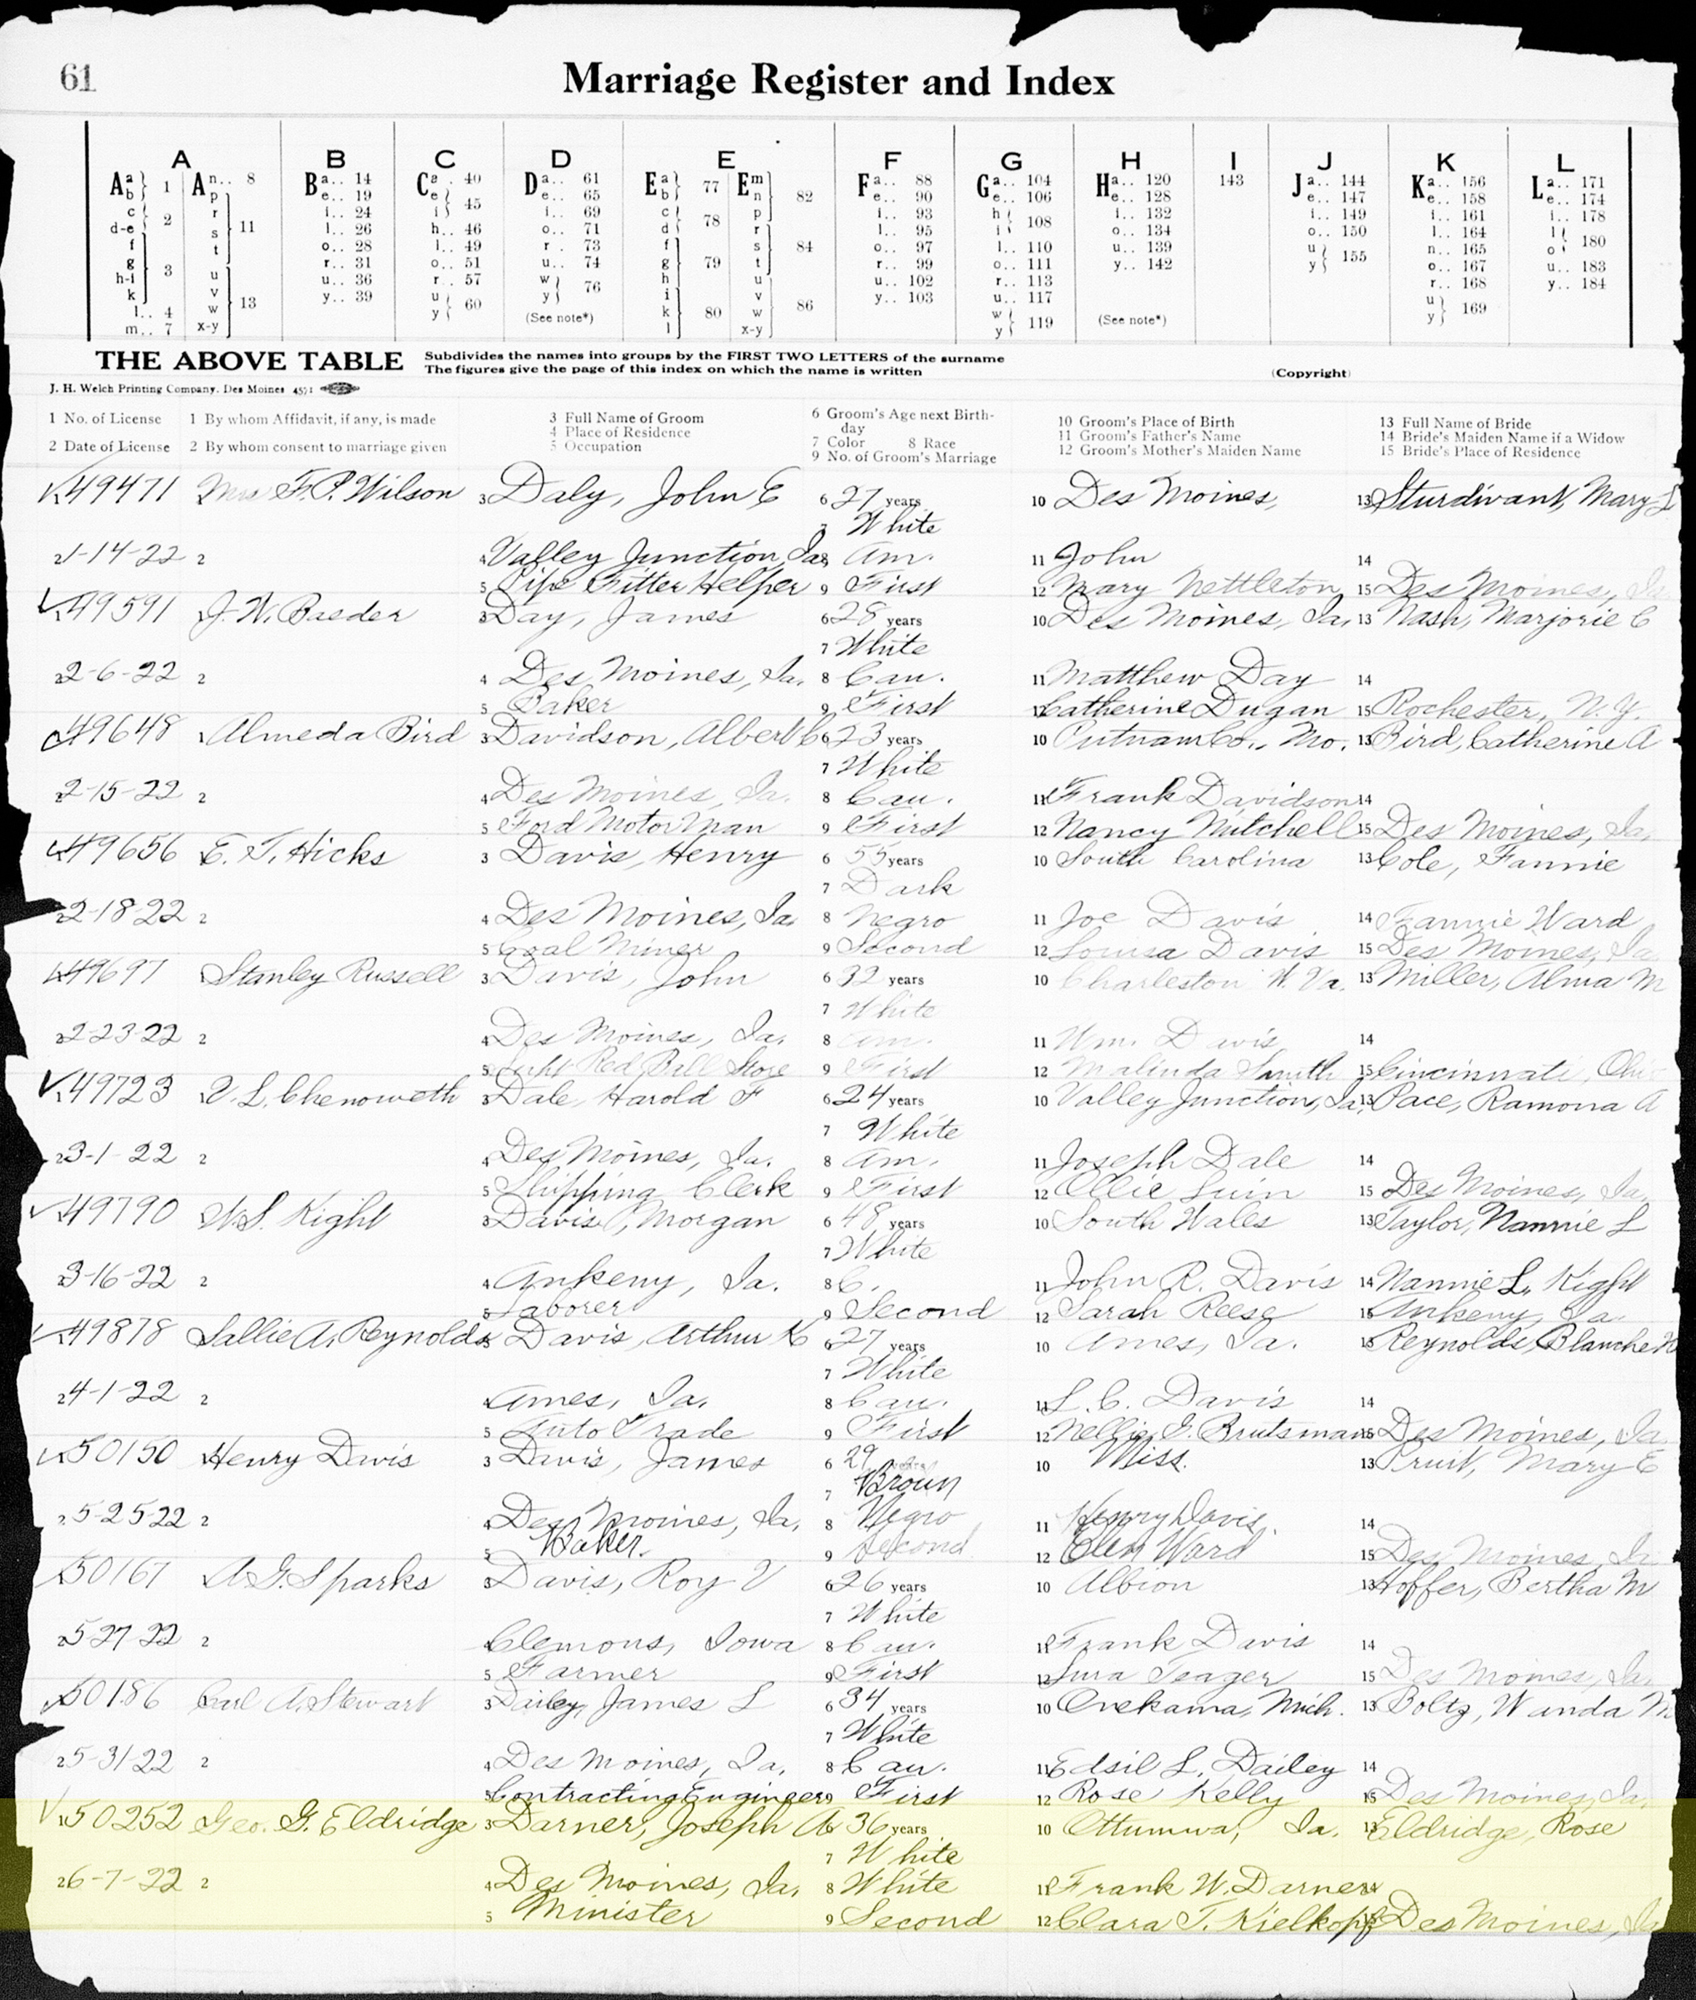 61
Marriage Register and Index
A B C D E F G H I J K L
Aa b} 1 An.. 8 Ba.. 14 Ca.. 40 Da.. 61 Ea b} 77 Em n p} 82 Fa.. 88 Ga.. 104 Ha.. 120 143 Ja.. 144 Ka.. 156 La.. 171
c d-e} 2 p r s t} 11 e.. 19 e i} 45 e.. 65 c d} 78 r s t} 84 e.. 90 e.. 106 e.. 128 e.. 147 e.. 158 e.. 174
f g h-i k} 3 u v w x-y} 13 i.. 24 h.. 46 i.. 69 f g h} 79 u v w x-y} 86 i.. 93 h i} 108 i.. 132 i.. 149 i.. 161 i.. 178
l.. 4 l.. 26 l.. 49 o.. 71 i k l} 80 l.. 95 l.. 110 o.. 134 o.. 150 l.. 164 l o} 180
m.. 7 o.. 28 o.. 51 r.. 73 o.. 97 o.. 111 u.. 139 u y} 155 n.. 165 u.. 183
r.. 31 r.. 57 u.. 74 r.. 99 r.. 113 y.. 142 o.. 167 y.. 184
u.. 36 u y} 60 w y} 76 u.. 102 u.. 117 r.. 168
y.. 39 (See note*) y.. 103 w y} 119 (See note*) u y} 169
THE ABOVE TABLE Subdivides the names into groups by the FIRST TWO LETTERS of the surname
The figures give the page of this index on which the name is written
(Copyright)
J. H. Welch Printing Company, Des Moines 4571
1 No. of License 1 By whom Affidavit, if any, is made 3 Full Name of Groom 6 Groom's Age next Birthday 10 Groom's Place of Birth 13 Full Name of Bride
4 Place of Residence 7 Color 8 Race 11 Groom's Father's Name 14 Bride's Maiden Name if a Widow
2 Date of License 2 By whom consent to marriage given 5 Occupation 9 No. of Groom's Marriage 12 Groom's Mother's Maiden Name 15 Bride's Place of Residence
1 49471 Mrs F. P. Wilson 3 Daly, John E 6 27 years 10 Des Moines, 13 Sturdivant, Mary L
7 White
2 1-14-22 2 4 Valley Junction, Ia 8 Am. 11 John 14
5 Pipe Fitter Helper 9 First 12 Mary Nettleton 15 Des Moines, Ia
1 49591 J. W. Baeder 3 Day, James 6 28 years 10 Des Moines, Ia, 13 Nash, Marjorie C
7 White
2 2-6-22 2 4 Des Moines, Ia. 8 Cau. 11 Matthew Day 14
5 Baker 9 First 12 Catherine Dugan 15 Rochester, N.Y.
1 49648 1 Almeda Bird 3 Davidson, Albert C 6 23 years 10 Putnam Co., Mo. 13 Bird, Catherine A
7 White
2 2-15-22 2 4 Des Moines, Ia. 8 Cau. 11 Frank Davidson 14
5 Ford Motor Man 9 First 12 Nancy Mitchell 15 Des Moines, Ia,
1 49656 E. T. Hicks 3 Davis, Henry 6 55 years 10 South Carolina 13 Cole, Fannie
7 Dark
2 2-18-22 2 4 Des Moines, Ia 8 Negro 11 Joe Davis 14 Fannie Ward
5 Coal Miner 9 Second 12 Louisa Davis 15 Des Moines, Ia
1 49697 Stanley Russell 3 Davis, John 6 32 years 10 Charleston W. Va. 13 Miller, Alma M
7 White
2 2-23-22 2 4 Des Moines, Ia. 8 Am. 11 Wm. Davis 14
5 Red Ball 9 First 12 Malinda Smith 15 Cincinnati, Ohio
1 49723 V. L. Chenoweth 3 Dale, Harold F 6 24 years 10 Valley Junction, Ia, 13 Pace, Ramona A
7 White
2 3-1-22 2 4 Des Moines, Ia. 8 Am. 11 Joseph Dale 14
5 Shipping Clerk 9 First 12 Ollie 15 Des Moines, Ia.
1 49790 W. S. Kight 3 Davis, Morgan 6 48 years 10 South Wales 13 Taylor, Nannie L
7 White
2 3-16-22 2 4 Ankeny, Ia. 8 C. 11 John R. Davis 14 Nannie L. Kight
5 Laborer 9 Second 12 Sarah Reese 15 Ankeny, Ia.
1 49878 Sallie A. Reynolds 3 Davis, Arthur K 6 27 years 10 Ames, Ia. 13 Reynolds, Blanche N
7 White
2 4-1-22 2 4 Ames, Ia. 8 Cau. 11 L. C. Davis 14
5 Auto Trade 9 First 12 Nellie G. Brutsman 15 Des Moines, Ia
1 50150 Henry Davis 3 Davis, James 6 29 years 10 Miss. 13 Pruit, Mary E
7 Broun
2 5-25-22 2 4 Des Moines, Ia. 8 Negro 11 Henry Davis. 14
5 Baker. 9 Second 12 Ellen Ward 15 Des Moines, Ia
1 50167 A. G. Sparks 3 Davis, Roy V 6 26 years 10 Albion 13 Hoffer, Bertha M
7 White
2 5-27-22 2 4 Clemons, Iowa 8 Cau. 11 Frank Davis 14
5 Farmer 9 First 12 Lura Teager 15 Des Moines, Ia.
1 50186 Carl A. Stewart 3 Dailey, James L 6 34 years 10 Onekama, Mich. 13 Boltz, Wanda M
7 White
2 5-31-22 2 4 Des Moines, Ia. 8 Cau. 11 Edsil L. Dailey 14
5 Contracting Engineer 9 First 12 Rose Kelly 15 Des Moines, Ia.
1 50252 Geo. G. Eldridge 3 Darner, Joseph A 6 36 years 10 Ottumwa, Ia. 13 Eldridge, Rose
7 White
2 6-7-22 2 4 Des Moines, Ia. 8 White 11 Frank W. Darner 14
5 Minister 9 Second 12 Clara T. Kielkopf 15 Des Moines, Ia